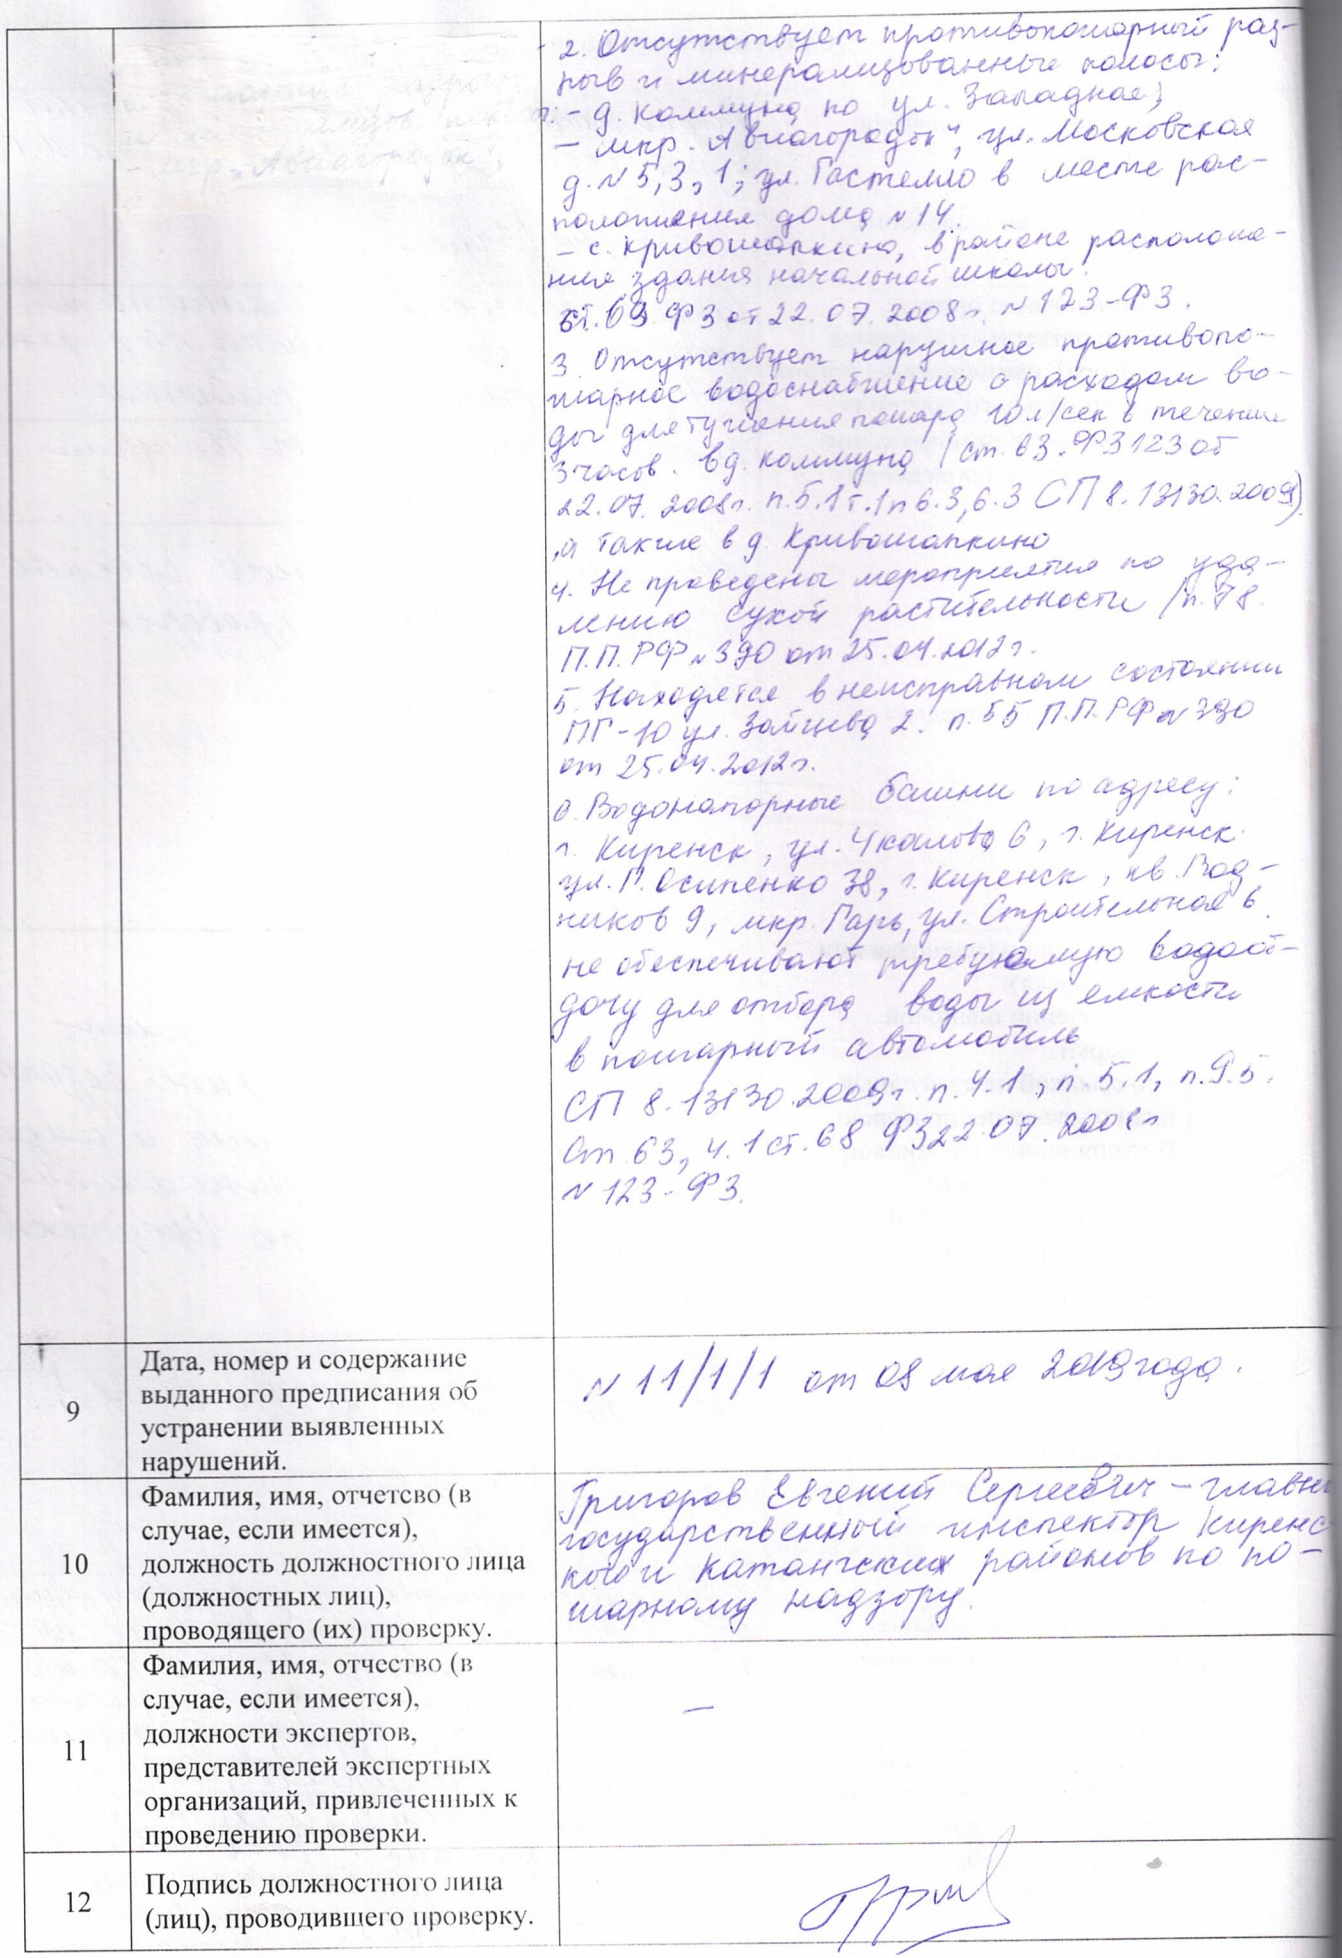 2. Отсутствует противопожарный раз-
рыв и минерализованные полосы:
- д. Коммуна по ул. Западная;
- мкр. "Авиагородок", ул. Московская
д. №5, 3, 1; ул. Гастелло в месте рас-
положения дома №14.
- с. Кривошапкино, в районе расположе-
ния здания начальной школы.
ст. 69 ФЗ от 22.07.2008г. №123-ФЗ.
3. Отсутствует наружное противопо-
жарное водоснабжение с расходом во-
ды для тушения пожара 10л/сек в течении
3 часов. в д. Коммуна /ст. 63. ФЗ 123 от
22.07.2008г. п.5.1 т.1 п 6.3, 6.3 СП 8.13130.2009)
,а также в д Кривошапкино
4. Не проведены мероприятия по уда-
лению сухой растительности /п. 78.
П.П.РФ №390 от 25.04.2012г.
5. Находятся в неисправном состоянии
ПГ-10 ул. Зайцева 2. п. 55 П.П.РФ №390
от 25.04.2012г.
6. Водонапорные башни по адресу:
г. Киренск, ул. Чкалова 6, г. Киренск
ул. П. Осипенко 38, г. Киренск, кв. Вод-
ников 9, мкр. Гарь, ул. Строительная 6
не обеспечивают требуемую водоот-
дачу для отбора воды из емкости
в пожарный автомобиль
СП 8.13130.2009г. п.4.1, п.5.1, п.9.5.
Ст. 63, ч.1 ст. 68 ФЗ 22.07.2008г
№123-ФЗ.
9
Дата, номер и содержание
выданного предписания об
устранении выявленных
нарушений.
№ 11/1/1 от 08 мая 2019 года.
10
Фамилия, имя, отчетсво (в
случае, если имеется),
должность должностного лица
(должностных лиц),
проводящего (их) проверку.
Григоров Евгений Сергеевич - главн
государственный инспектор Киренс
кого и Катангских районов по по-
жарному надзору.
11
Фамилия, имя, отчество (в
случае, если имеется),
должности экспертов,
представителей экспертных
организаций, привлеченных к
проведению проверки.
—
12
Подпись должностного лица
(лиц), проводившего проверку.